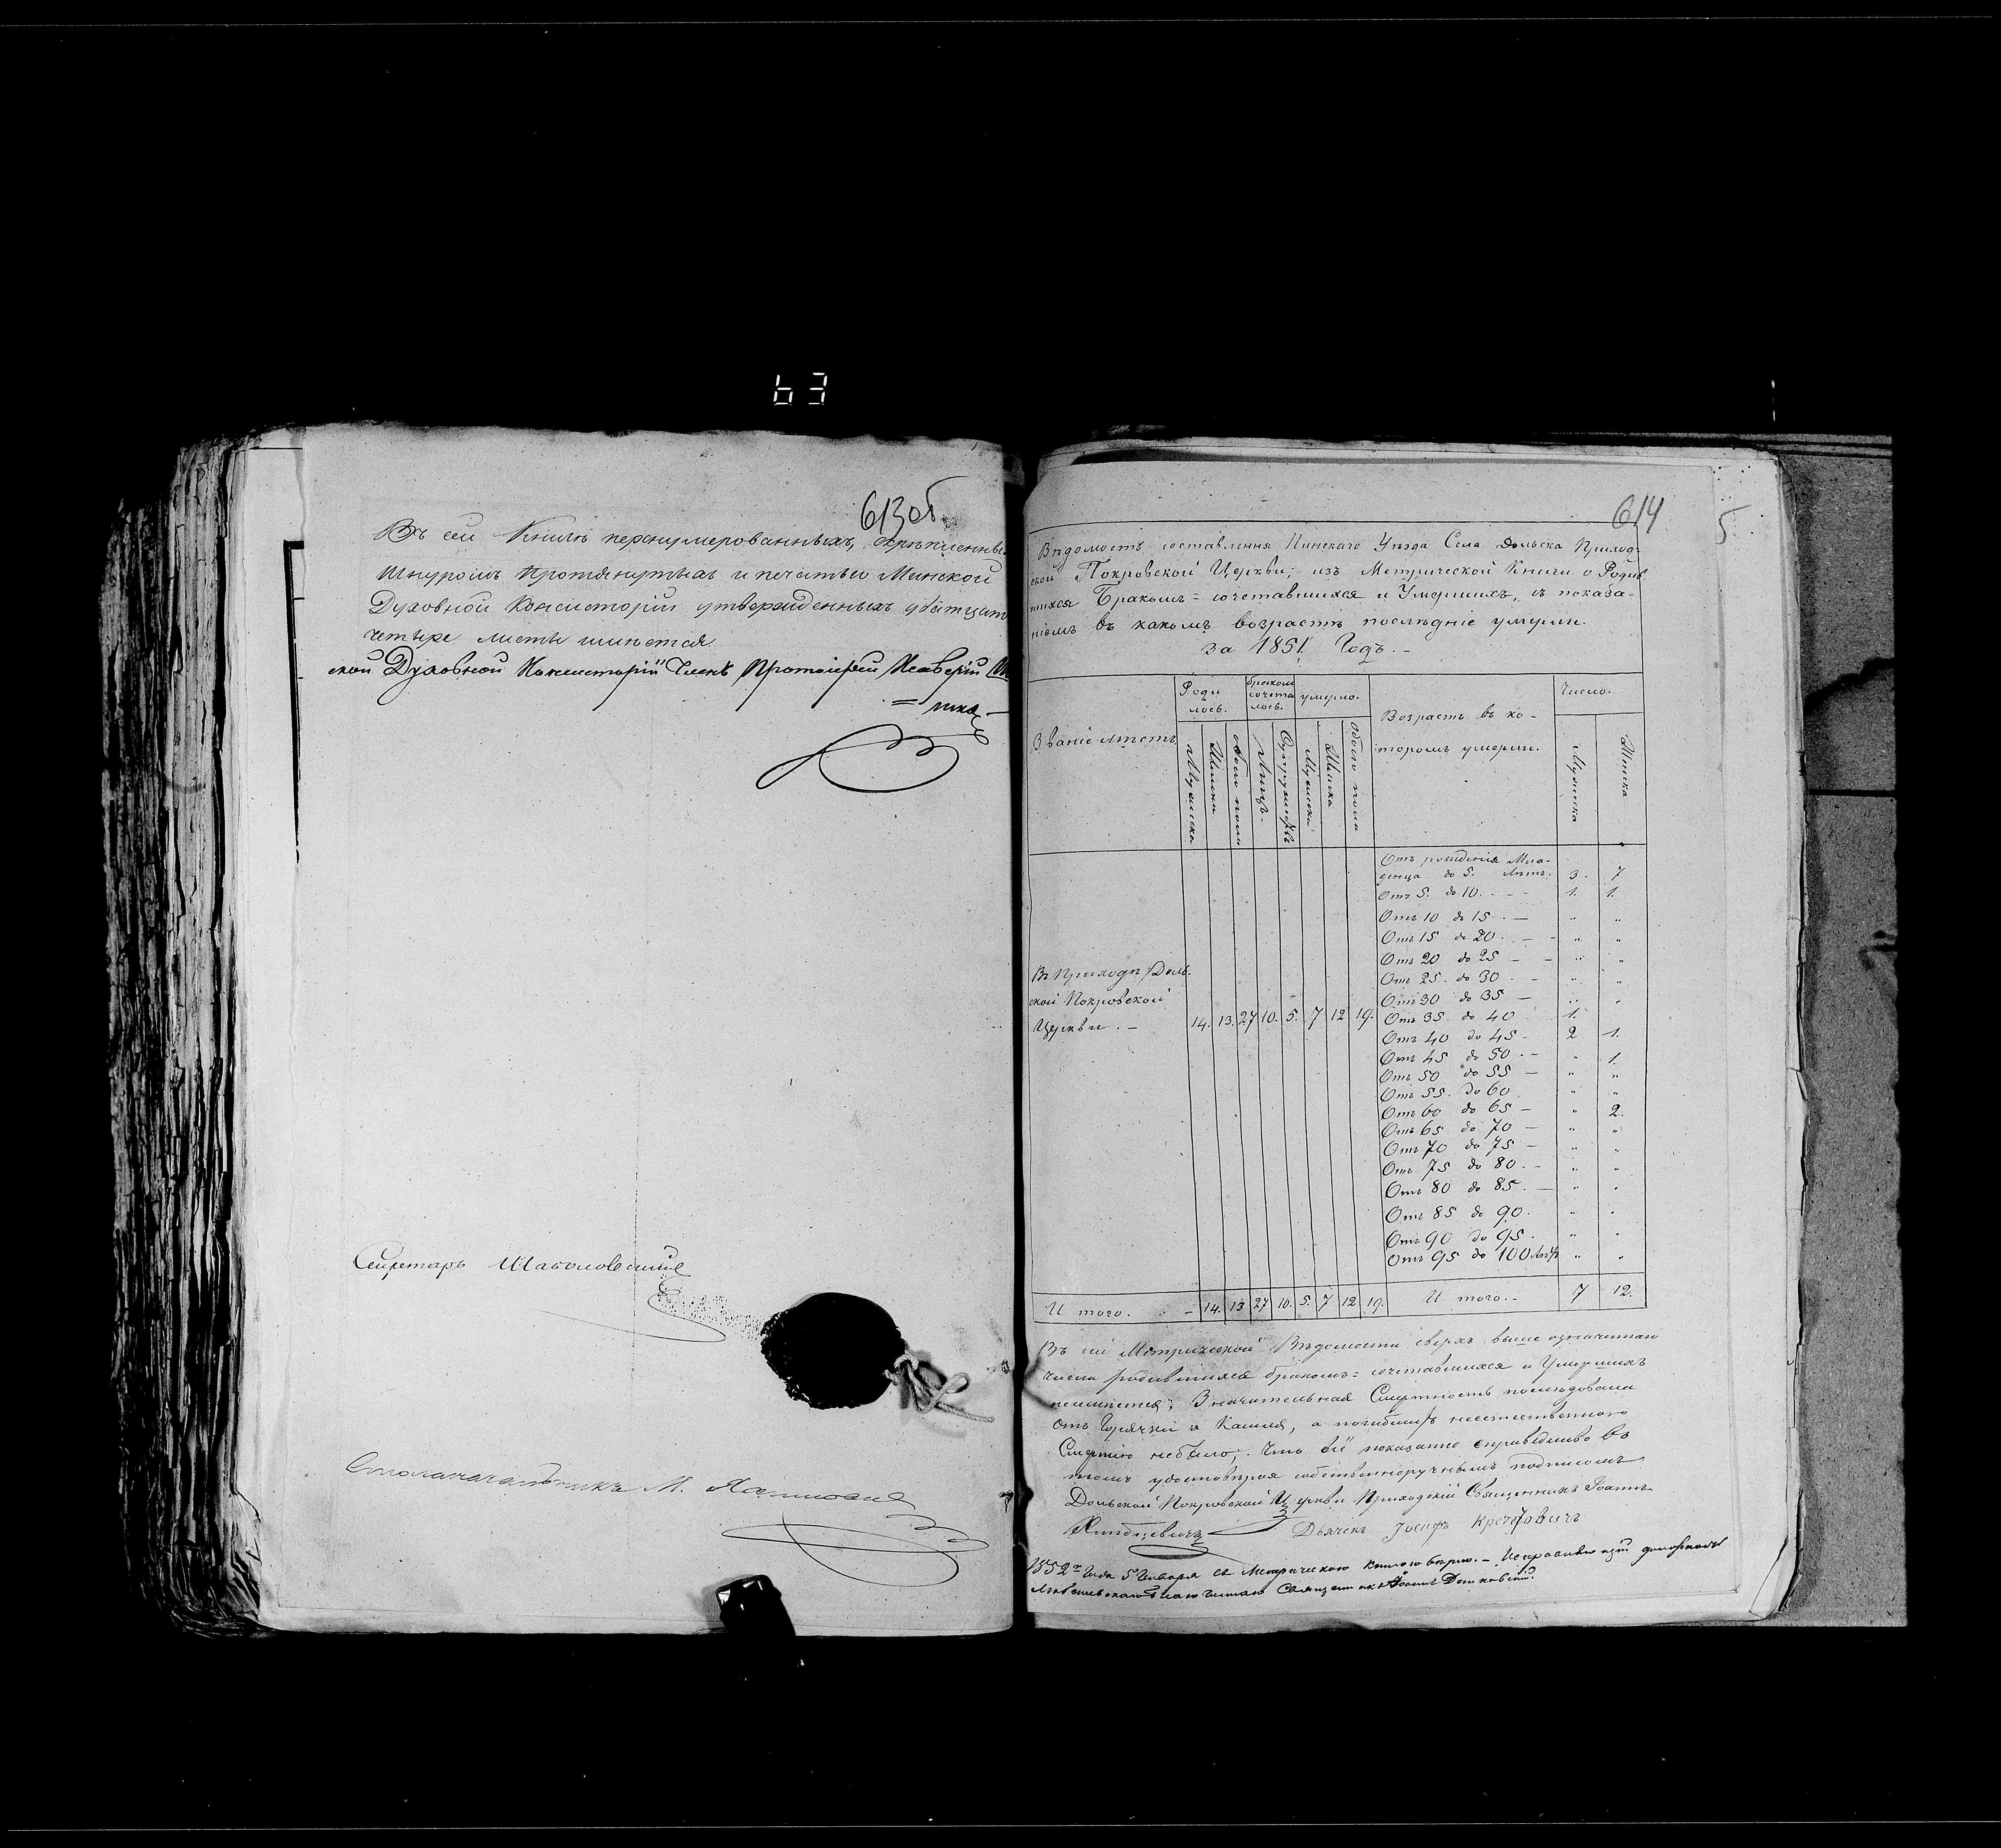 63
613об.
Въ сей Книгѣ перенумерованныхъ, скрѣпленны
Шнуромъ протянутыхъ и печатью Минской
Духовной Консисторіи утвержденныхъ двѣтцать
четыре листы имѣется
ской Духовной Консисторіи Членъ Протоіерей
Секретарь
Столоначальникъ М.
614
5
Вѣдомость составлення Пинскаго Уѣзда Села Дольска Приход-
ской Покровской Церкви; изъ Метрической Книги о Родив
шихся Бракомъ=сочетавшихся и Умершихъ, съ показа-
ніемъ въ какомъ возрастѣ послѣдніе умерли.
за 1851. Годъ.-
Званіе мѣстъ
Роди
лось.
бракомъ
сочета
лось.
умерло.
Возрастъ въ ко-
торомъ умерли.
Число.
Мужеска
Женска
обоего пола
Лицъ.
Супружествъ
Мужеска
Женска
Обоего пола
Мужеска
Женска
Въ Приходѣ Доль-
ской Покровской
Церкви. - 14. 13. 27 10. 5. 7 12 19.
Отъ рожденія Мла-
денца до 5. Лѣтъ. 3. 7
Отъ 5. до 10. - - - 1. 1.
Отъ 10 до 15 . — " "
Отъ 15 до 20. — - " "
Отъ 20 до 25 - - " "
Отъ 25. до 30 - " "
Отъ 30 до 35 — " "
Отъ 35 до 40 1. "
Отъ 40 до 45 - 2 1.
Отъ 45 до 50 . - " 1.
Отъ 50 до 55 — " "
Отъ 55. до 60. " "
Отъ 60 до 65 — " 2.
Отъ 65 до 70 — " "
Отъ 70 до 75 — " "
Отъ 75 до 80. - " "
Отъ 80 до 85. — " "
Отъ 85 до 90. " "
Отъ 90 до 95. " "
Отъ 95 до 100 Лѣтъ " "
И того. - 14. 13 27 10. 5. 7 12 19. И того. - 7 12.
Въ сій Метрической Вѣдомости сверхъ выше означеннаго
числа родившихся бракомъ=сочетавшихся и Умершихъ
неимѣется; Значительная Смертность послѣдовала
Отъ Горячки и Кашля, а погибшихъ неестественною
Смертію небыло; Что всё показанно справедливо въ
томъ удостовѣряя собственноручнымъ подписомъ
Дольской Покровской Церкви Приходскій Священникъ Іоаннъ
Дьячекъ Іосифъ Кречетовичъ
1852го Года 5 Января съ Метрическою книгою вѣрно. - Исправляющій должность
Любешевскаго благочиннаго Священникъ Іоаннъ